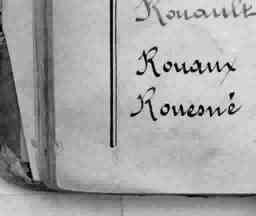 Rouault
Rouaux
Rouesné